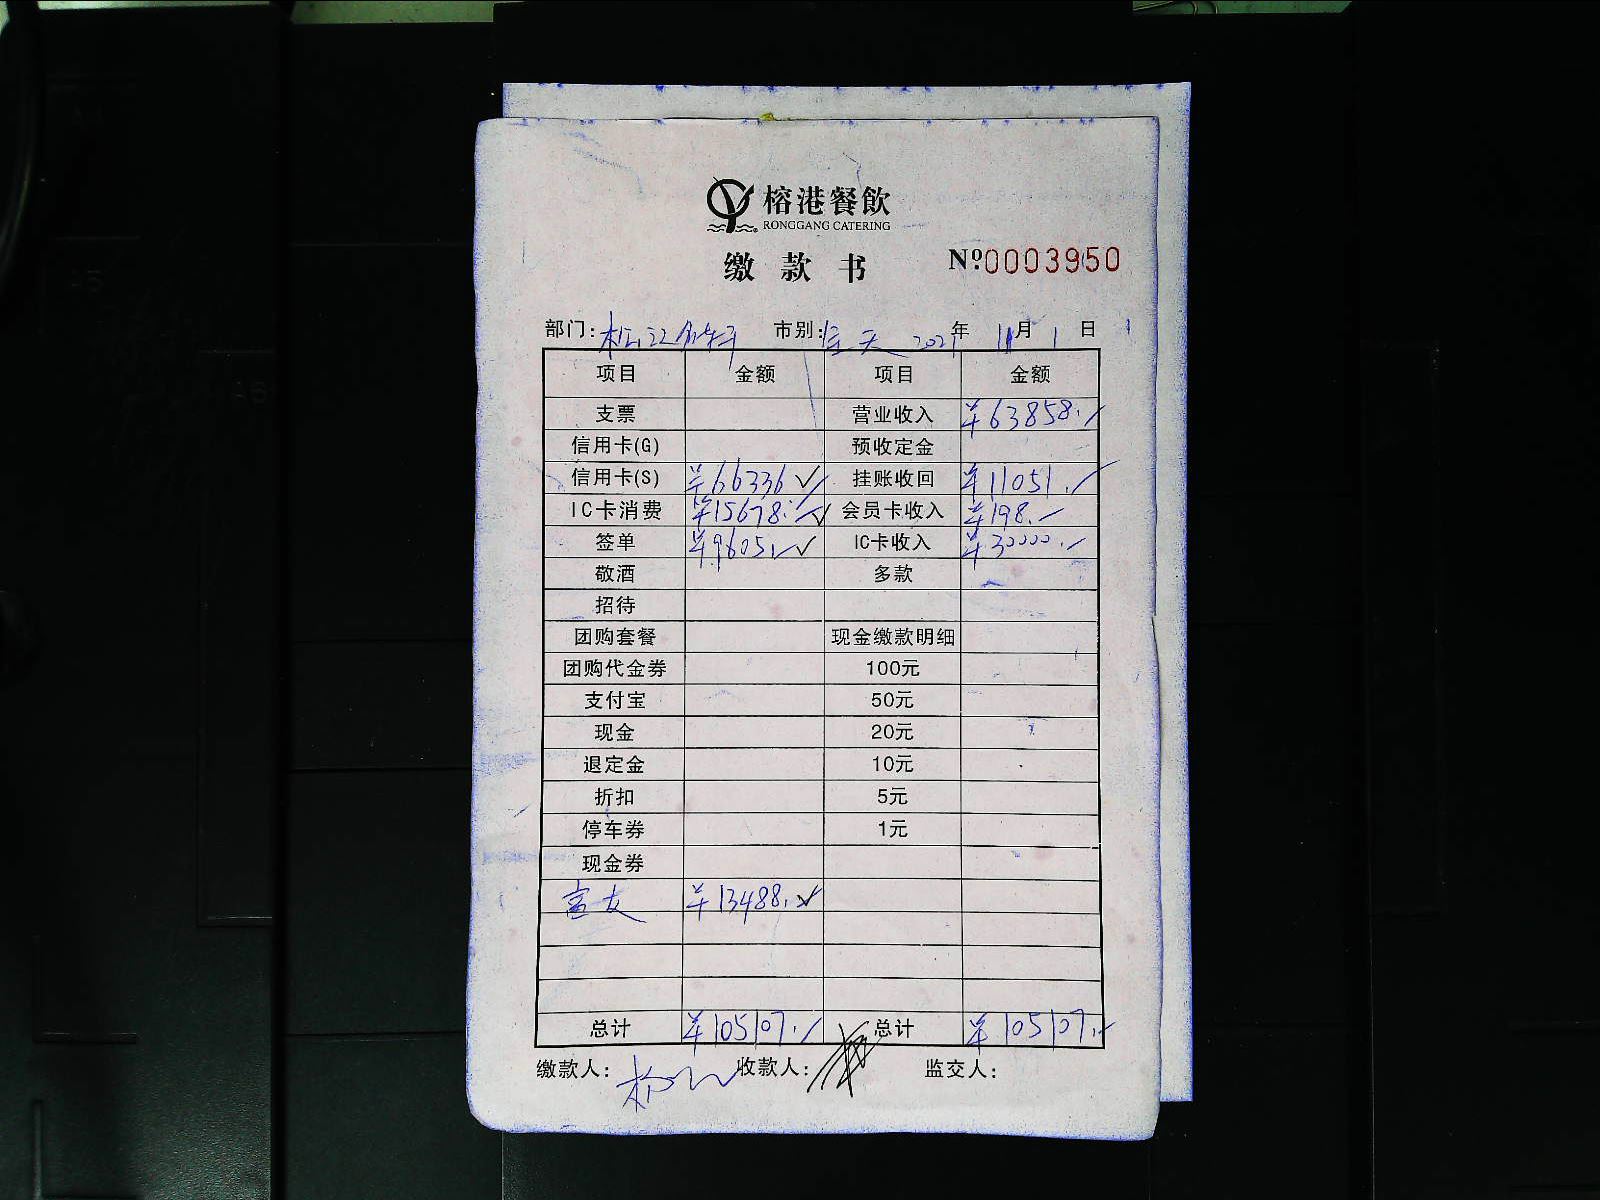 榕港餐飲
RONGGANG CATERING
缴款书 Nº0003950
部门: 松江 市别: 全天 2021年 11月 1日
项目 金额 项目 金额
支票 营业收入 ¥63858.
信用卡(G) 预收定金
信用卡(S) ¥66336 挂账收回 ¥11051.
IC卡消费 ¥15678. 会员卡收入 ¥198.
签单 ¥9605. IC卡收入 ¥30000.
敬酒 多款
招待
团购套餐 现金缴款明细
团购代金券 100元
支付宝 50元
现金 20元
退定金 10元
折扣 5元
停车券 1元
现金券
富友 ¥13488.
总计 ¥105107. 总计 ¥105107.
缴款人: 收款人: 监交人: